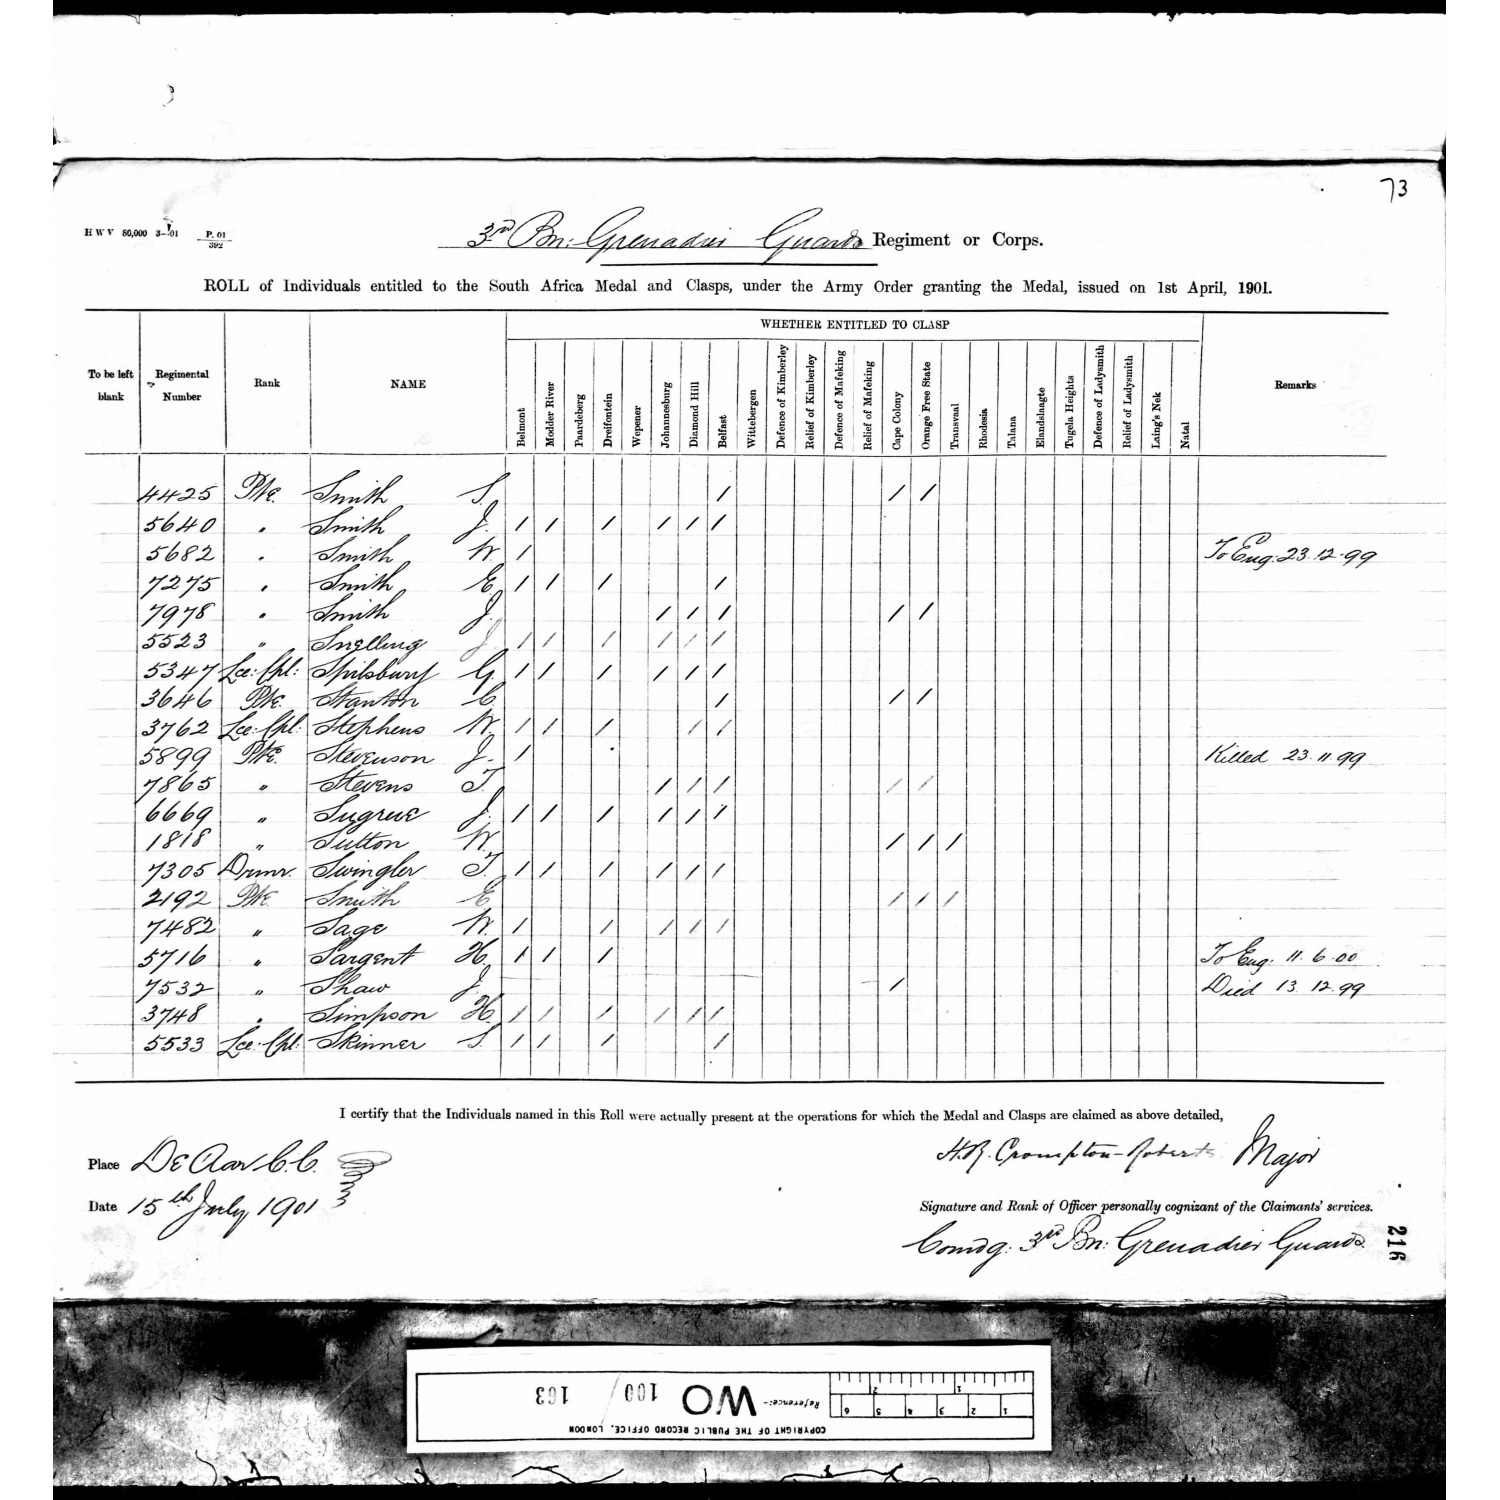 73
H W V 80,000 3–01 P. 01 / 392
3rd Bn: Grenadier Guards Regiment or Corps.
ROLL of Individuals entitled to the South Africa Medal and Clasps, under the Army Order granting the Medal, issued on 1st April, 1901.
WHETHER ENTITLED TO CLASP
To be left blank Regimental Number Rank NAME Belmont Modder River Paardeberg Dreifontein Wepener Johannesburg Diamond Hill Belfast Wittebergen Defence of Kimberley Relief of Kimberley Defence of Mafeking Relief of Mafeking Cape Colony Orange Free State Transvaal Rhodesia Talana Elandslaagte Tugela Heights Defence of Ladysmith Relief of Ladysmith Laing's Nek Natal Remarks
4425 Pte. Smith S. / / /
5640 " Smith J. / / / / / /
5682 " Smith W / To Eng: 23.12.99
7275 " Smith E / / / /
7978 " Smith J. / / / / /
5523 " Snelling J / / / / / /
5347 Lce: Cpl: Spilsbury G. / / / / / /
3646 Pte. Stanton C. / / /
3762 Lce: Cpl: Stephens W. / / / / /
5899 Pte. Stevenson J. / Killed 23.11.99
7865 " Stevens T. / / / / /
6669 " Sugrue J. / / / / / /
1818 " Sutton W. / / /
7305 Drmr. Swingler T. / / / / / /
2192 Pte Smith E / / /
7482 " Sage W. / / / / /
5716 " Sargent H. / / / To Eng: 11.6.00
7532 " Shaw J. / Died 13.12.99
3748 " Simpson H. / / / / / /
5533 Lce: Cpl: Skinner S. / / / /
I certify that the Individuals named in this Roll were actually present at the operations for which the Medal and Clasps are claimed as above detailed,
Place De Aar C.C.
Date 15th July 1901
H.R. Crompton-Roberts Major
Signature and Rank of Officer personally cognizant of the Claimants' services.
Comdg: 3rd Bn: Grenadier Guards.
216
Reference:- WO 100 / 163
COPYRIGHT OF THE PUBLIC RECORD OFFICE, LONDON
1 2 3 4 5 6
1 2